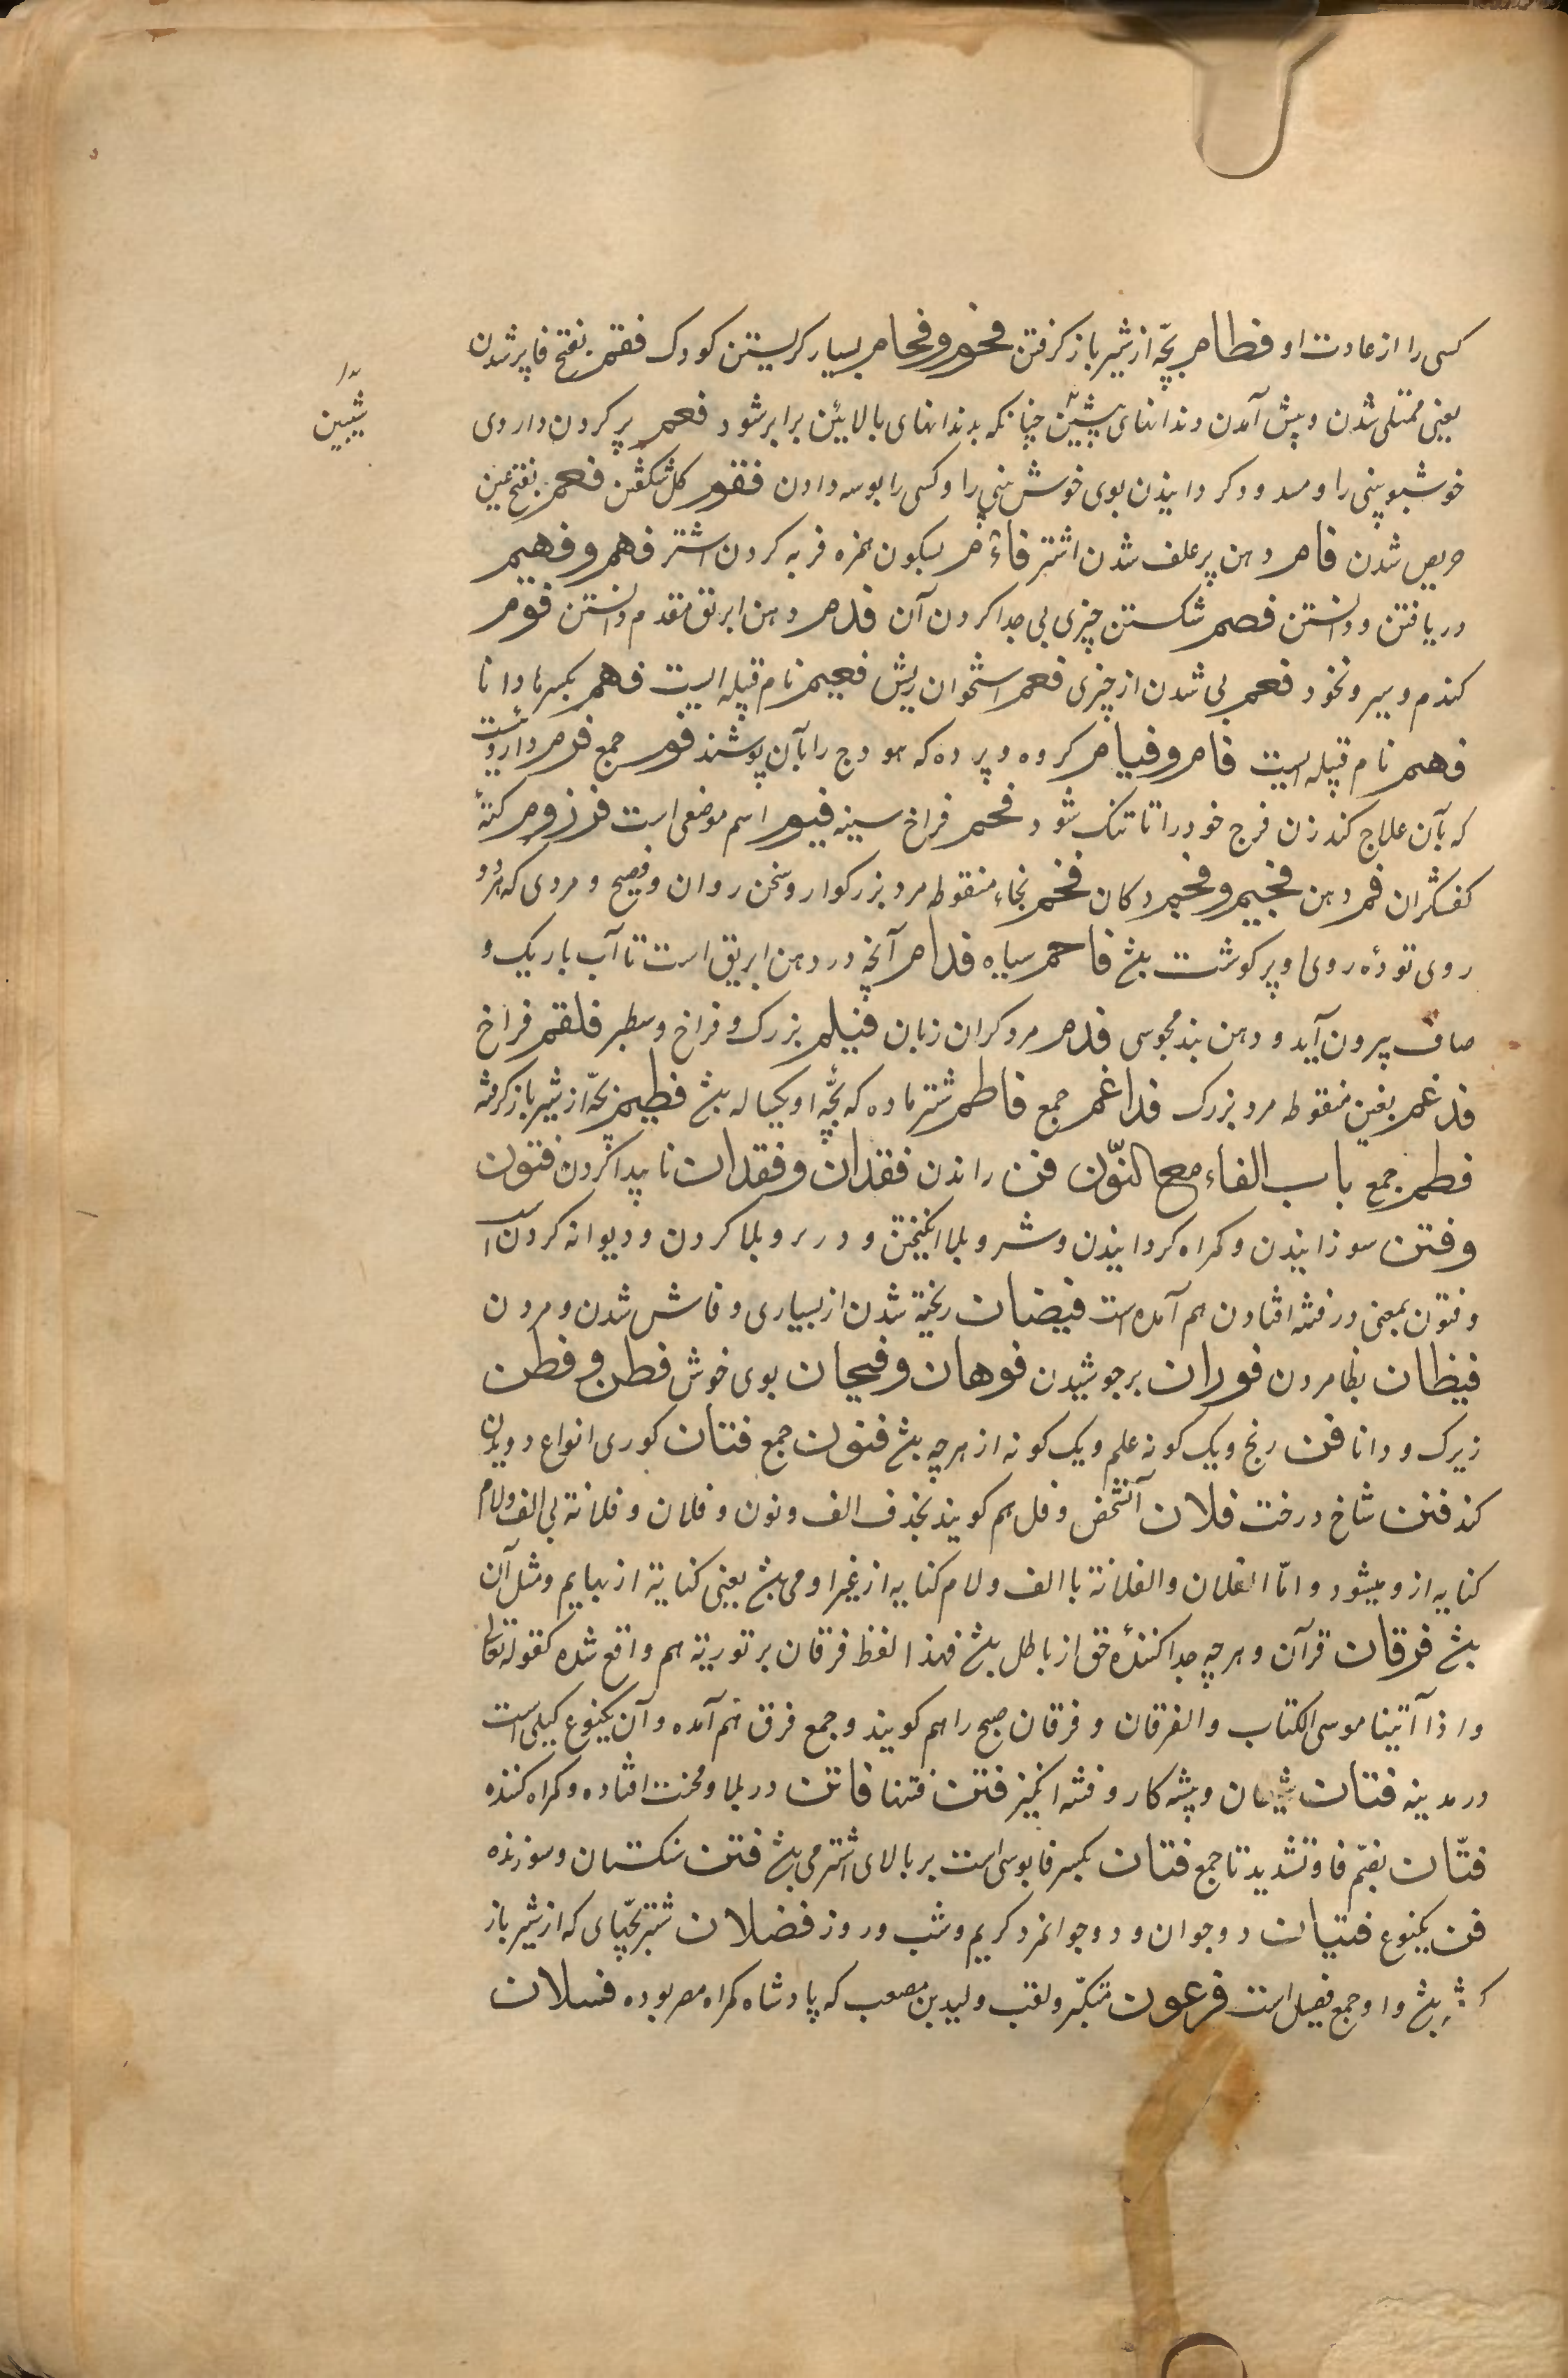 کسی را از عادت او فطام بچّه از شیر باز کرفتن فحوم و فحام بسیار کریستن کودک فقم بفتح فا پر شدن
یعنی ممتلی شدن و پیش آمدن دندانهای پیشین چنانکه بدندانهای بالایین برابر شود فعم پر کردن داروی
شیبین
خوشبو بینی را و مسدود کردانیدن بوی خوش بینی را و کسی را بوسه دادن فقوم کل شکفتن فعم بفتح عین
حریص شدن فام دهن پر علف شدن اشتر فأم بسکون همزه فربه کردن اشتر فهم و فهیم
دریافتن و دانستن فصم شکستن چیزی بی جدا کردن آن فدم دهن ابریق مقدم دانستن فوم
کندم و سیر و نخود فعم بی شدن از چیزی فعم استخوان ریش فعیم نام قبیله ایست فهم بکسر ها دانا
فهم نام قبیله ایست فام و فیام کروه و پرده که هودج را بآن پوشند فوم جمع فرم داروئیست
که بآن علاج کند زن فرج خود را تا تنک شود فحم فراخ سینه فیوم اسم موضعی است فرزوم کندۀ
کفشکران فم دهن فخیم و فحیم دکان فخم بخاء منقوطه مرد بزرکوار و سخن روان و فصیح و مردی که هر دو
روی تودۀ روی او پر کوشت بشد فاحم سیاه فدام آنچه در دهن ابریق است تا آب باریک و
صاف بیرون آید و دهن بند مجوسی فدم مرد کران زبان فیلم بزرک و فراخ و سطبر فلقم فراخ
فدغم بغین منقوطه مرد بزرک فداغم جمع فاطم شتر ماده که بچّۀ او یکساله بشد فطیم بچّه از شیر باز کرفته
فطم جمع باب الفاء مع النّون فن راندن فقدان و فقدان ناپیدا کردن فتون
و فتن سوزانیدن و کمراه کردانیدن و شر و بلا انکیختن و در بلا کردن و دیوانه کردن
و فتون بمعنی در فتنه افتادن هم آمده است فیضان ریخته شدن از بسیاری و فاش شدن و مردن
فیظان بظا مردن فوران بر جوشیدن فوهان و فیحان بوی خوش فطن و فطن
زیرک و دانا فن رنج و یک کونه علم و یک کونه از هر چه بشد فنون جمع فتان کوری انواع دویدن
کند فنن شاخ درخت فلان آنشخص و فل هم کویند بحذف الف و نون و فلان و فلانة بی الف و لام
کنایه از و میشود و امّا الفلان و الفلانة با الف و لام کنایه از غیر او می بشد یعنی کنایة از بهایم و مثل آن
بشد فرقان قرآن و هر چه جدا کنندۀ حق از باطل بشد فهذا لفظ فرقان بر توریة هم واقع شده کقوله تعالی
و اذ آتینا موسی الکتاب و الفرقان و فرقان صبح را هم کویند و جمع فرق هم آمده و آن یکنوع کیلی است
در مدینه فتان شیطان و پیشه کار و فتنه انکیز فتن فتنها فاتن در بلا و محنت افتاده و کمراه کننده
فتّان بضمّ فا و تشدید تا جمع فتان بکسر فا بوسی است بر بالای اشتر می بشد فتن سنکستان و سوزنده
فن یکنوع فتیان دو جوان و دو جوانمرد کریم و شب و روز فصلان شتر بچّهای که از شیر باز
بشد و او جمع فصیل است فرعون متکبّر و لقب ولید بن مصعب که پادشاه کمراه مصر بوده فسلان